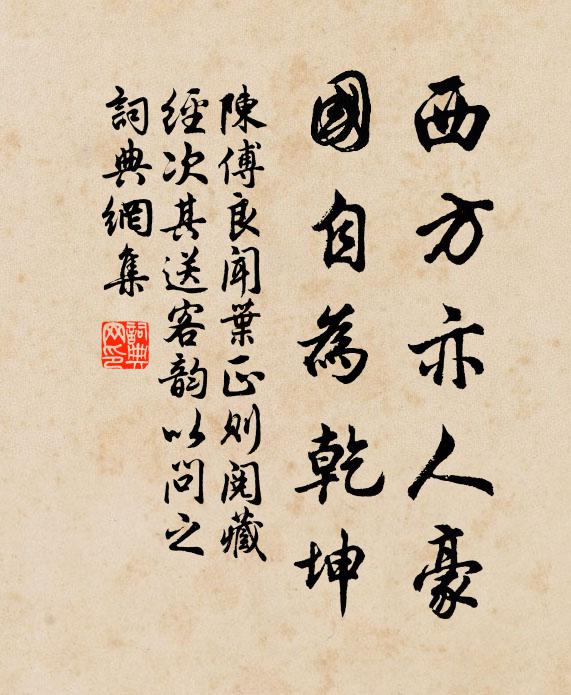 西方亦人豪
國自為乾坤
陳傅良聞葉正則閱藏
經次其送客韵以問之
詞典網集
詞典網印